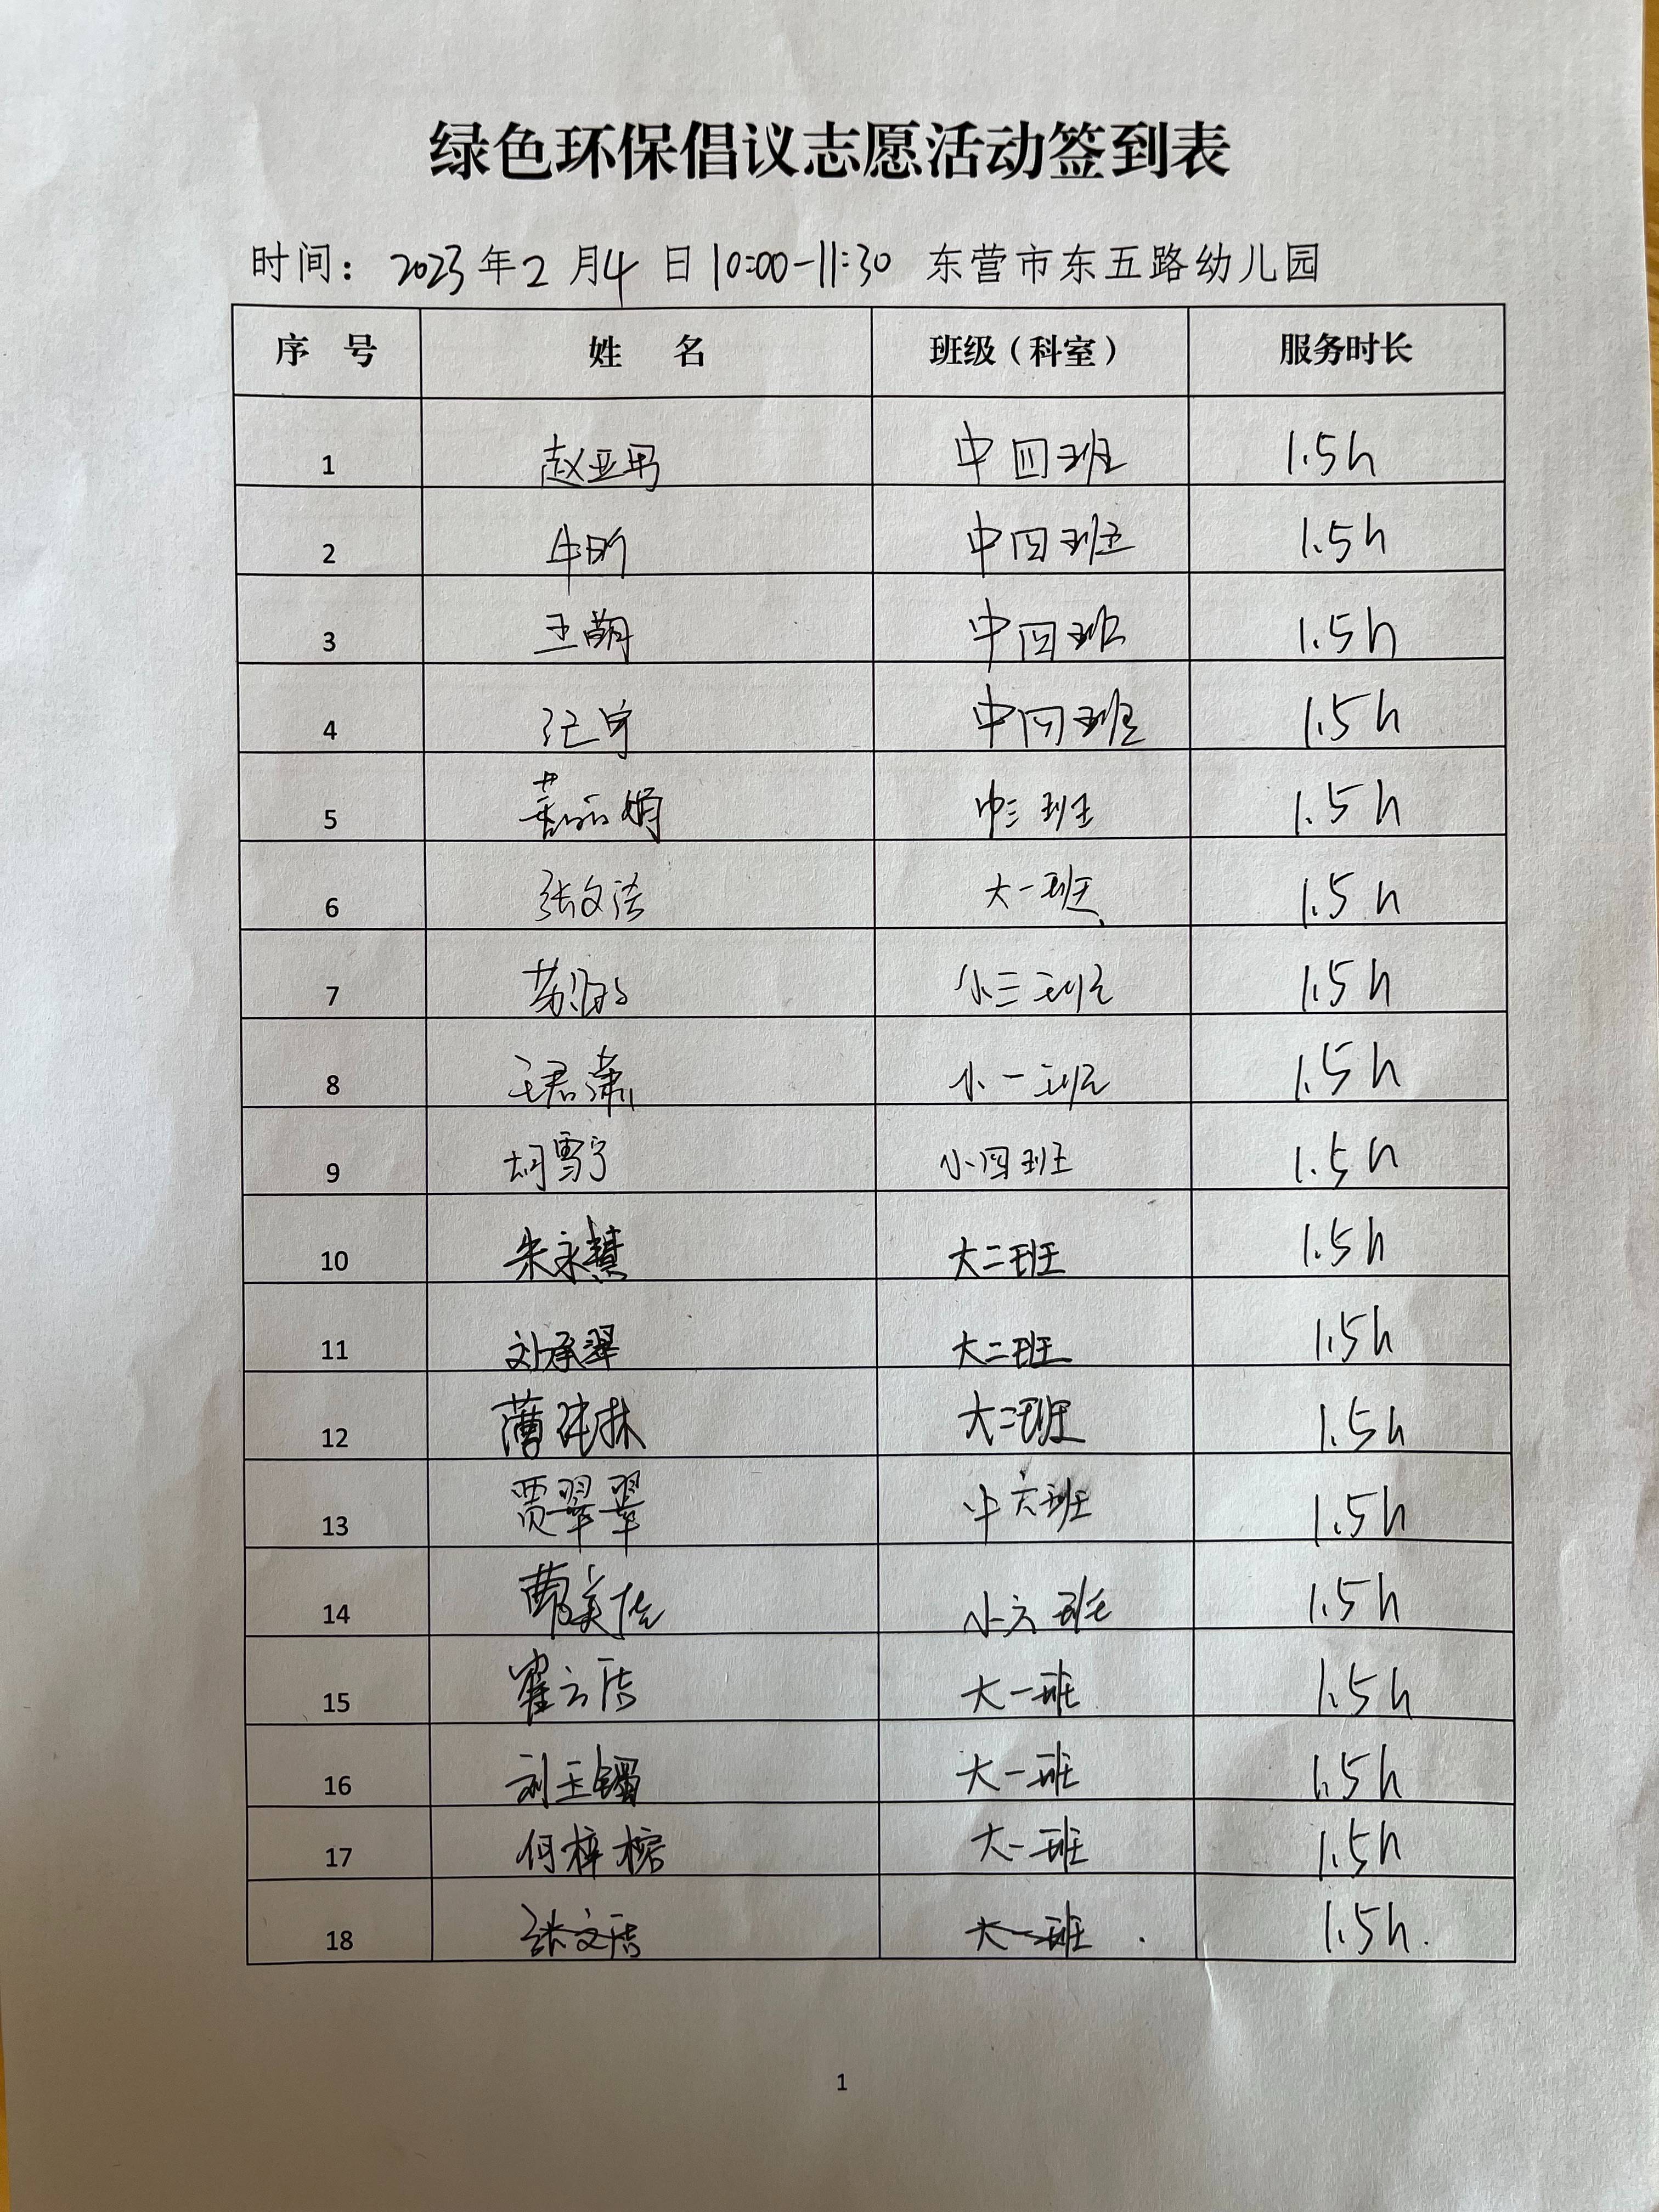 绿色环保倡议志愿活动签到表
时间: 2023年2月4日10:00-11:30 东营市东五路幼儿园
序号 姓名 班级(科室) 服务时长
1 赵亚男 中四班 1.5h
2 牛昕 中四班 1.5h
3 王萌 中四班 1.5h
4 中四班 1.5h
5 黄丽娟 中三班 1.5h
6 张文洁 大一班 1.5h
7 小三班 1.5h
8 王君潇 小一班 1.5h
9 胡雪宁 小四班 1.5h
10 朱永慧 大二班 1.5h
11 刘承翠 大二班 1.5h
12 大二班 1.5h
13 贾翠翠 中六班 1.5h
14 曹美佳 小六班 1.5h
15 崔云洁 大一班 1.5h
16 刘玉镯 大一班 1.5h
17 何梓榕 大一班 1.5h
18 张文洁 大一班 1.5h.
1